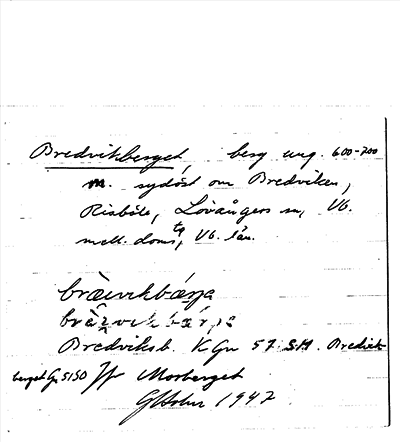 Bredvikberget, berg ung. 600-700
m. sydöst om Bredviken,
Risböle, Lövångers sn, Vb.
mell. doms
tg
, Vb. län.
brèvikbærja
Bredviksb. K Gn 57. S.H. Bredvik-
berget Gn 5150 Jfr Morberget
GHolm 1947